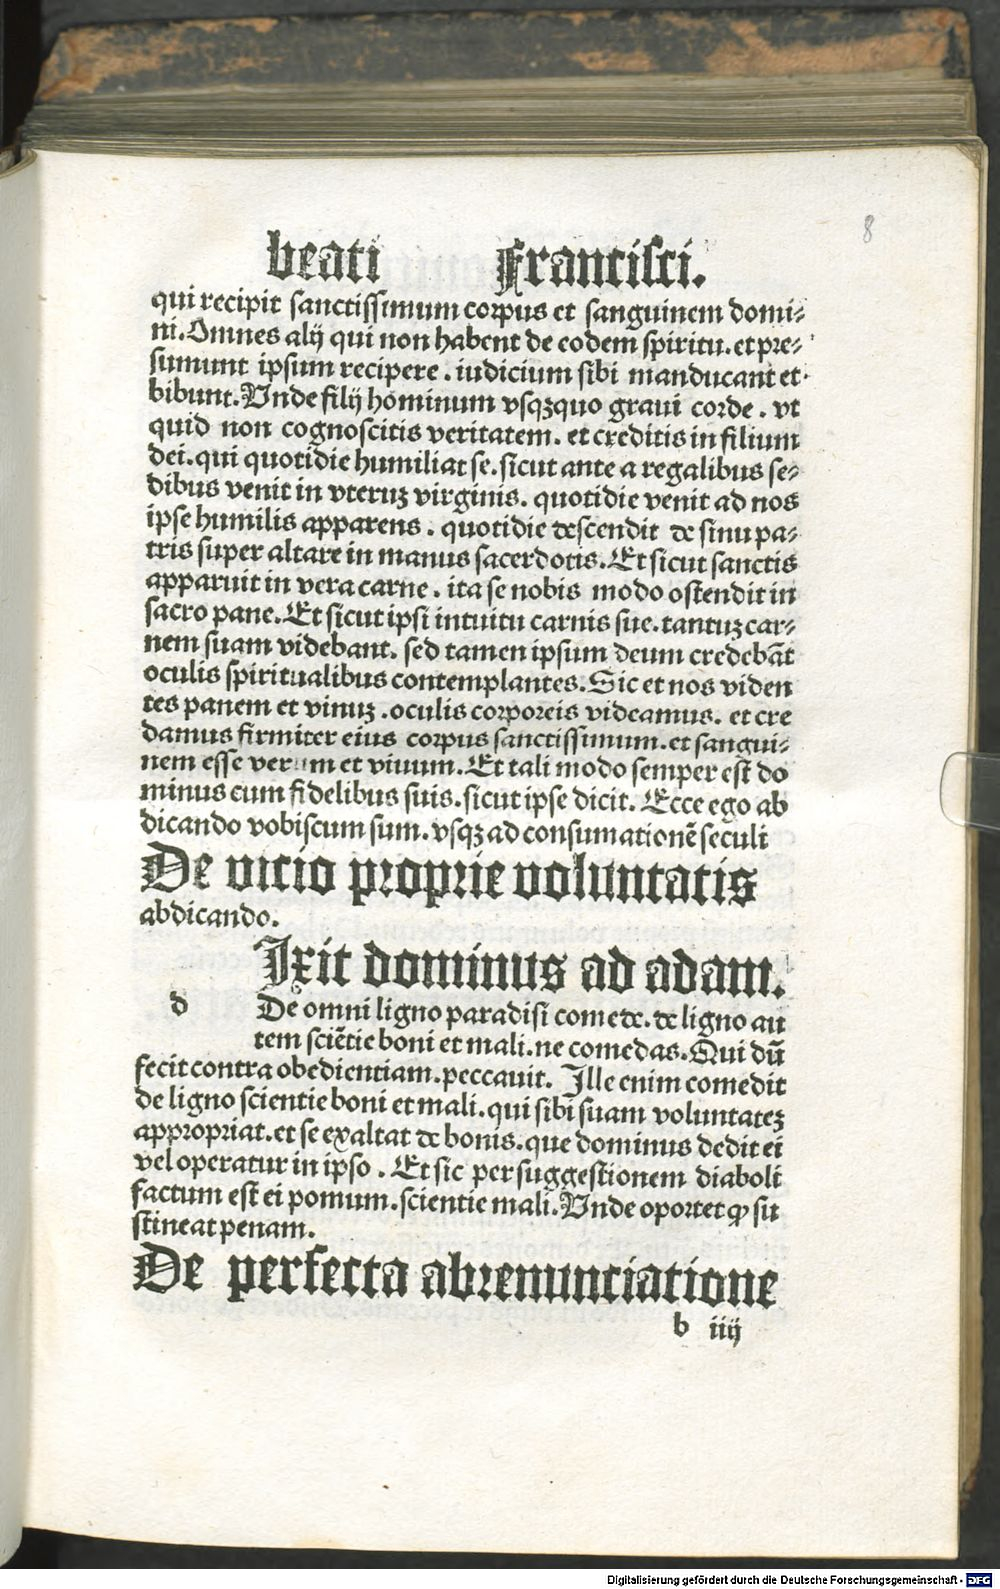 8
beati Francisci.
qui recipit sanctissimum corpus et sanguinem domi⸗
ni. Omnes alij qui non habent de eodem spiritu. et pre⸗
sumunt ipsum recipere. iudicium sibi manducant et
bibunt. Vnde filij hominum vsqꝫquo graui corde. vt
quid non cognoscitis veritatem. et creditis in filium
dei. qui quotidie humiliat se. sicut ante a regalibus se⸗
dibus venit in vteruꝫ virginis. quotidie venit ad nos
ipse humilis apparens. quotidie descendit de sinu pa⸗
tris super altare in manus sacerdotis. Et sicut sanctis
apparuit in vera carne. ita se nobis modo ostendit in
sacro pane. Et sicut ipsi intuitu carnis sue. tantuꝫ car⸗
nem suam videbant. sed tamen ipsum deum credebāt
oculis spiritualibus contemplantes. Sic et nos viden
tes panem et vinuꝫ. oculis corporeis videamus. et cre
damus firmiter eius corpus sanctissimum. et sangui⸗
nem esse verum et viuum. Et tali modo semper est do
minus cum fidelibus suis. sicut ipse dicit. Ecce ego ab
dicando vobiscum sum. vsqꝫ ad consumationē seculi
De vicio proprie voluntatis
abdicando.
Ixit dominus ad adam.
d De omni ligno paradisi comede. de ligno au
tem sciētie boni et mali. ne comedas. Qui dū
fecit contra obedientiam. peccauit. Ille enim comedit
de ligno scientie boni et mali. qui sibi suam voluntateꝫ
appropriat. et se exaltat de bonis. que dominus dedit ei
vel operatur in ipso. Et sic per suggestionem diaboli
factum est ei pomum. scientie mali. Vnde oportet ꝙ su
stineat penam.
De perfecta abrenunciatione
b iiij
Digitalisierung gefördert durch die Deutsche Forschungsgemeinschaft - DFG